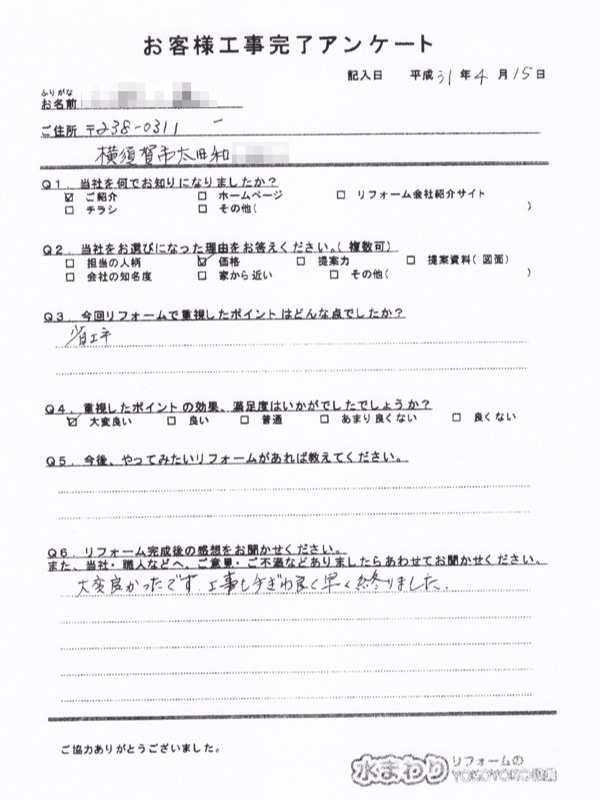 お客様工事完了アンケート
記入日 平成31年4月15日
ふりがな
お名前
ご住所 〒238-0311
横須賀市太田和
Q1．当社を何でお知りになりましたか？
☑ ご紹介 □ ホームページ □ リフォーム会社紹介サイト
□ チラシ □ その他( )
Q2．当社をお選びになった理由をお答えください。(複数可)
□ 担当の人柄 ☑ 価格 □ 提案力 □ 提案資料(図面)
□ 会社の知名度 □ 家から近い □ その他( )
Q3．今回リフォームで重視したポイントはどんな点でしたか？
省エネ
Q4．重視したポイントの効果、満足度はいかがでしたでしょうか？
☑ 大変良い □ 良い □ 普通 □ あまり良くない □ 良くない
Q5．今後、やってみたいリフォームがあれば教えてください。
Q6．リフォーム完成後の感想をお聞かせください。
また、当社・職人などへ、ご意見・ご不満などありましたらあわせてお聞かせください。
大変良かったです．工事もてぎわ良く早く終りました．
ご協力ありがとうございました。
水まわりリフォームの
YOKOYOKO